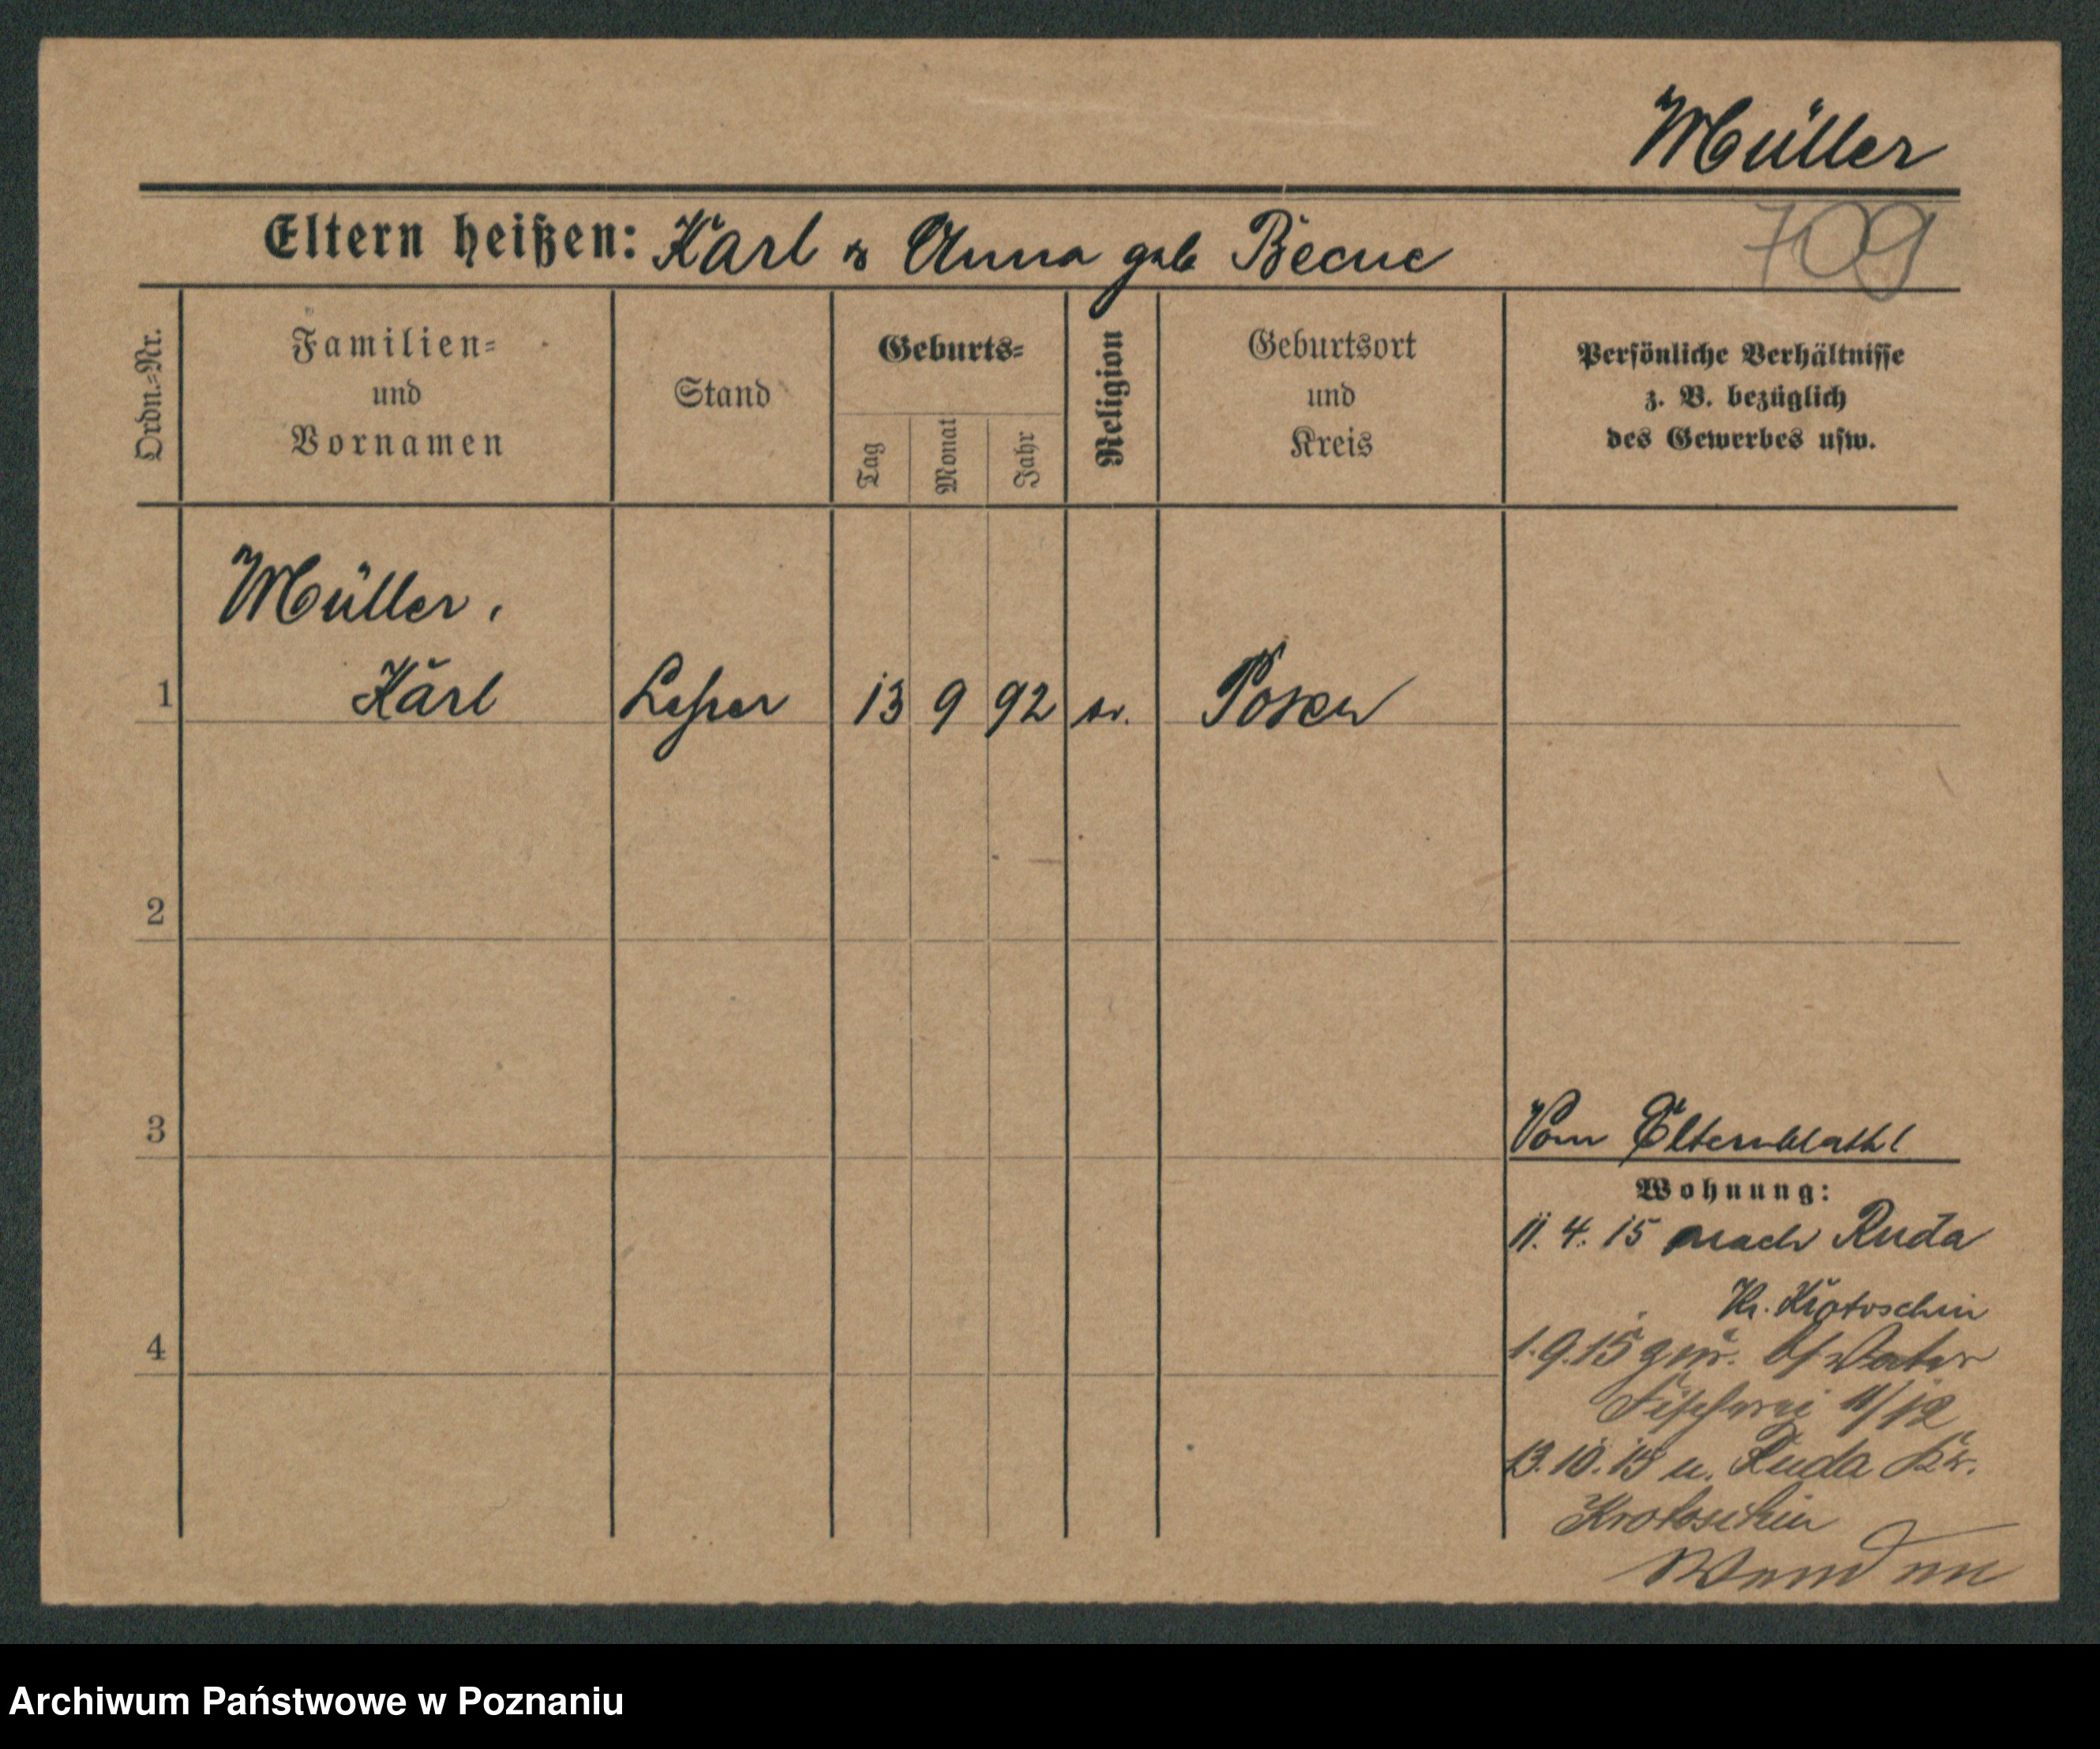 Müller
Eltern heißen: Karl & Anna geb Becue
709
Ordn.-Nr.
Familien- und Vornamen
Stand
Geburts-
Tag
Monat
Jahr
Religion
Geburtsort und Kreis
Persönliche Verhältnisse
z. B. bezüglich
des Gewerbes usw.
Müller,
1 Karl Lehrer 13 9 92 ev. Posen
2
3
Vom Elternblatt!
Wohnung:
11. 4. 15 nach Ruda
Kr. Krotoschin
4
1.9.15 zur. b/ Vater
Fischerei 11/12
13.10.15 n. Ruda Kr.
Krotoschin
Archiwum Państwowe w Poznaniu